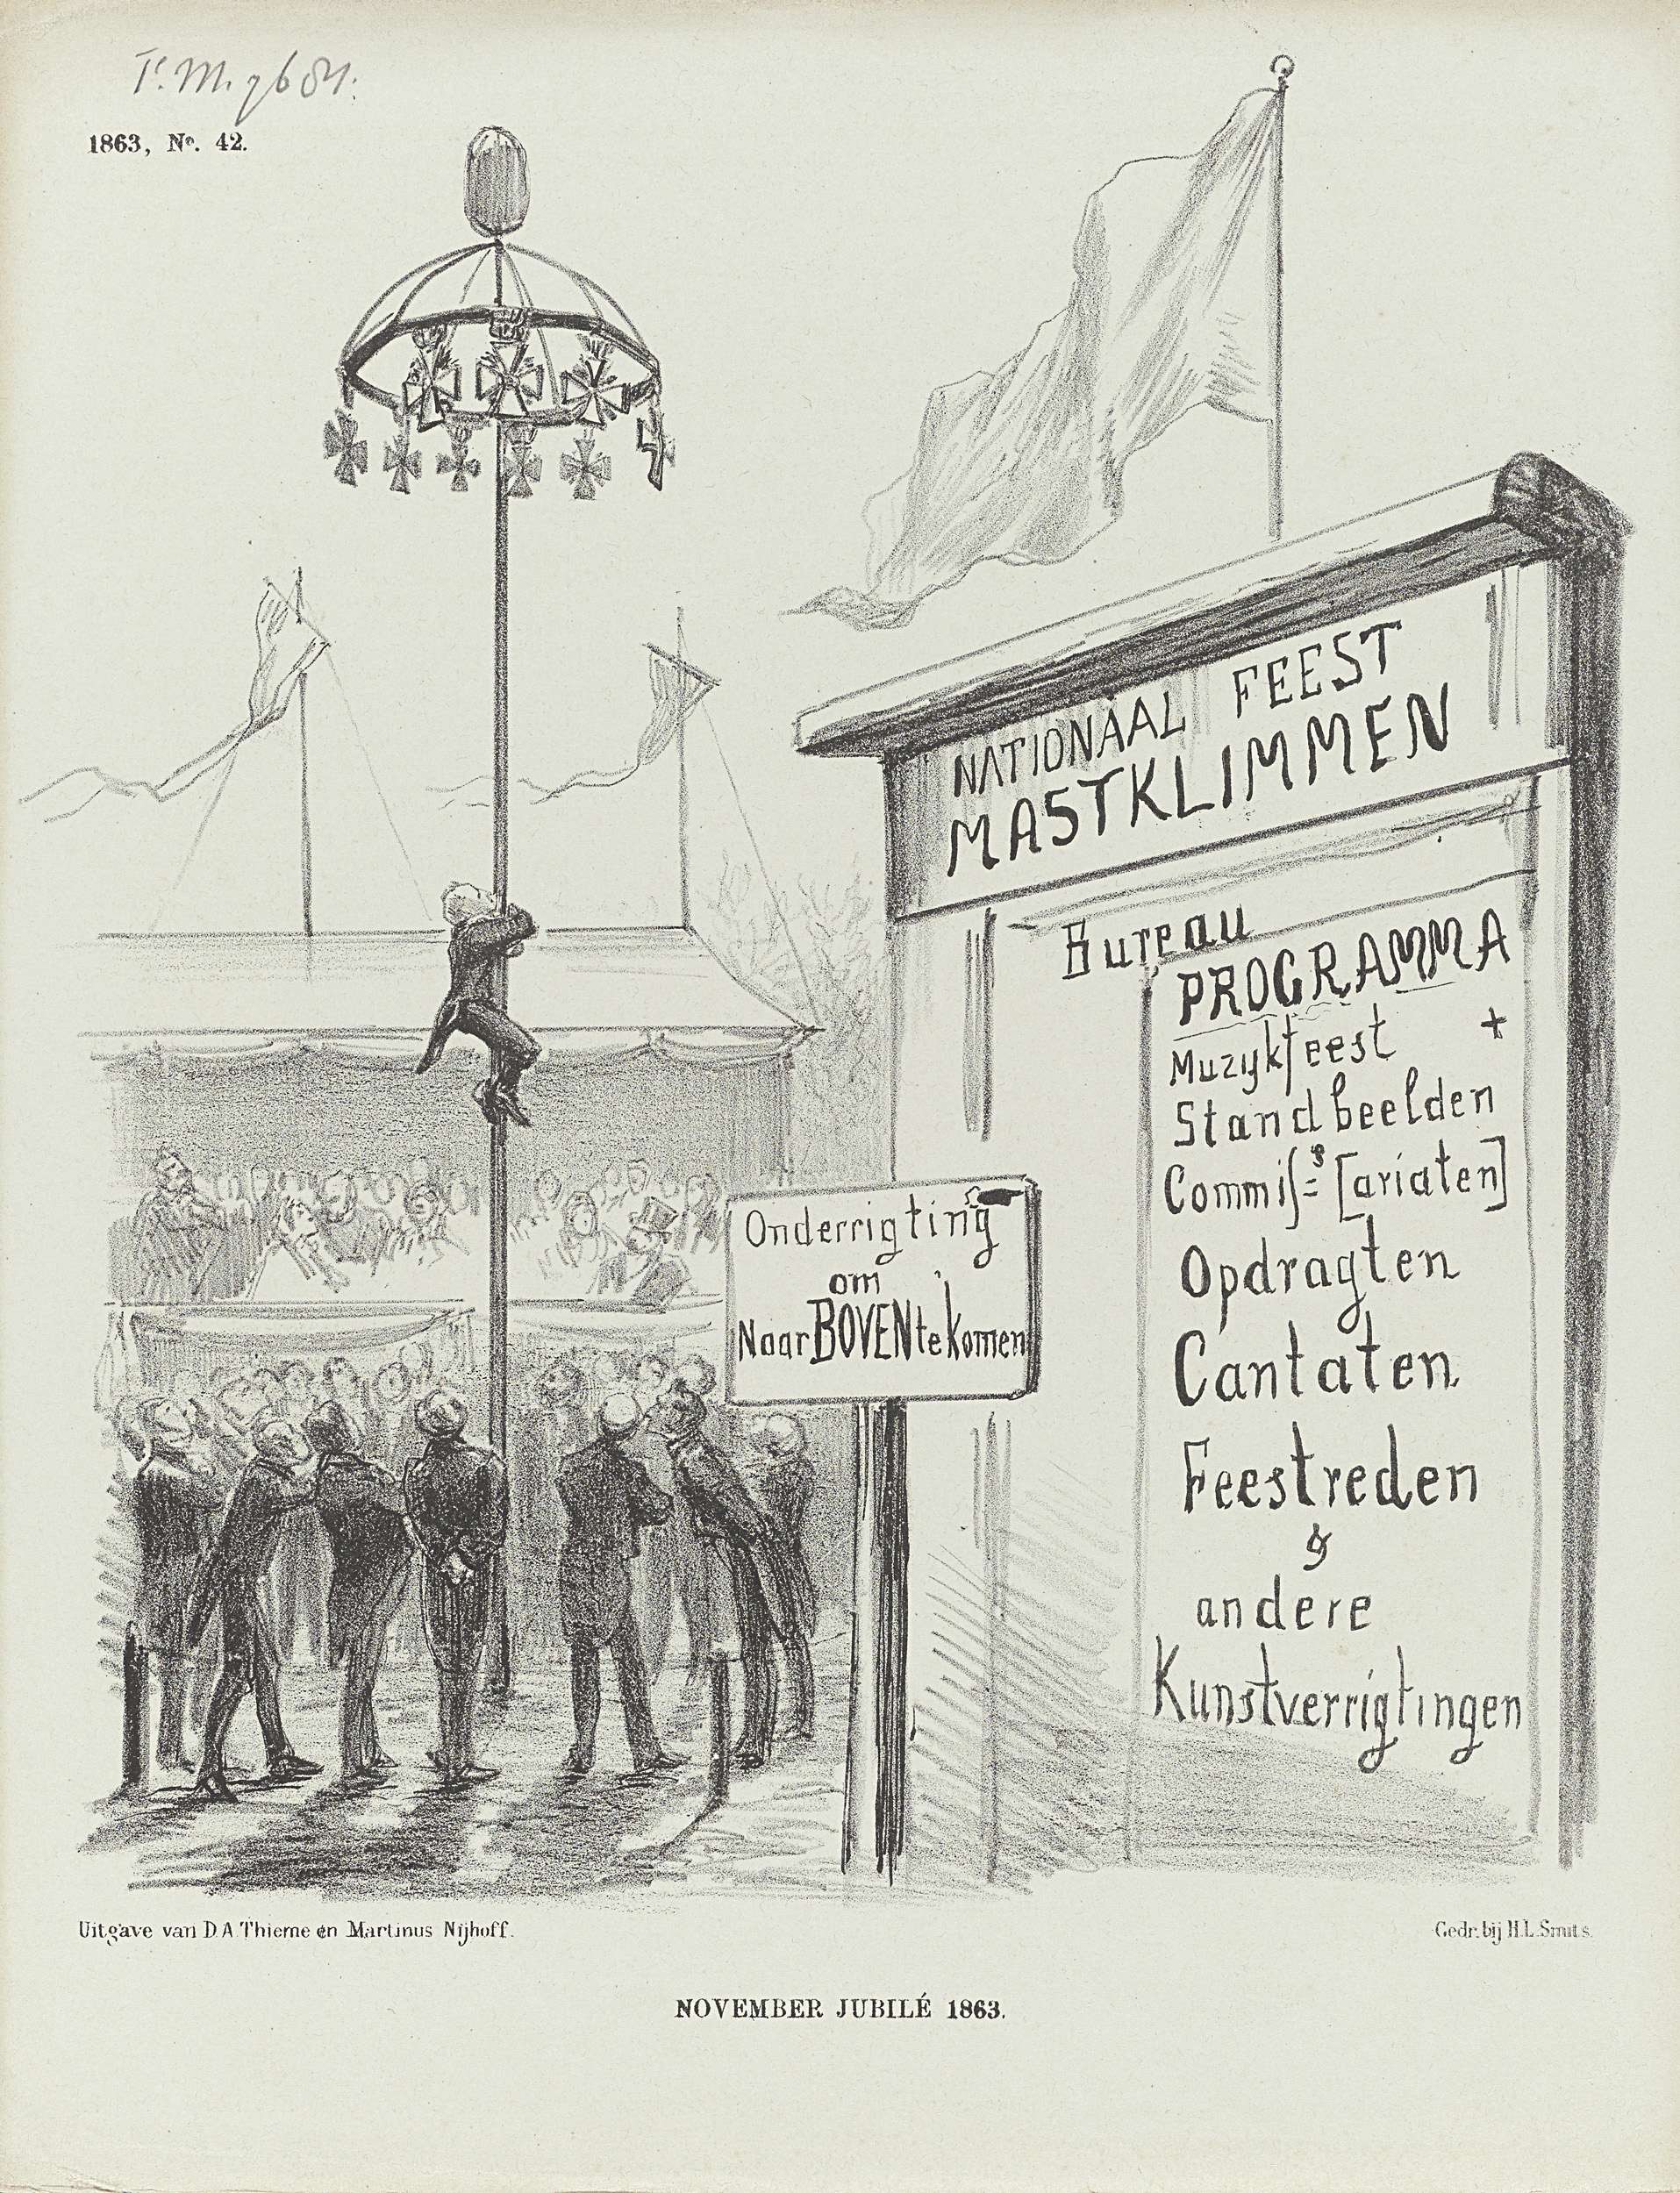 1863, No. 42.
NATIONAAL FEEST
MASTKLIMMEN
Bureau
PROGRAMMA
Muzykfeest +
Standbeelden
Commiſ=s [ariaten]
Opdragten
Cantaten
Feestreden
&
andere
Kunstverrigtingen
Onderrigting
om
Naar BOVEN te komen
Uitgave van D.A. Thieme en Martinus Nijhoff.
Gedr. bij H.L. Smits.
NOVEMBER JUBILÉ 1863.